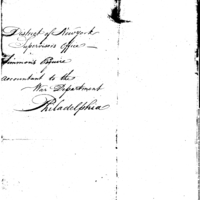 District of Newyork
Supervisors Office
Simmons Esquire
accountant to the
War Department
Philadelphia